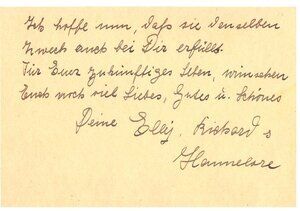 Ich hoffe nun, daß sie denselben
Zweck auch bei Dir erfüllt.
Für Euer zukünftiges Leben, wünschen
Euch noch viel Liebes, Gutes u. Schönes
Deine Elly, Richard
Hannelore